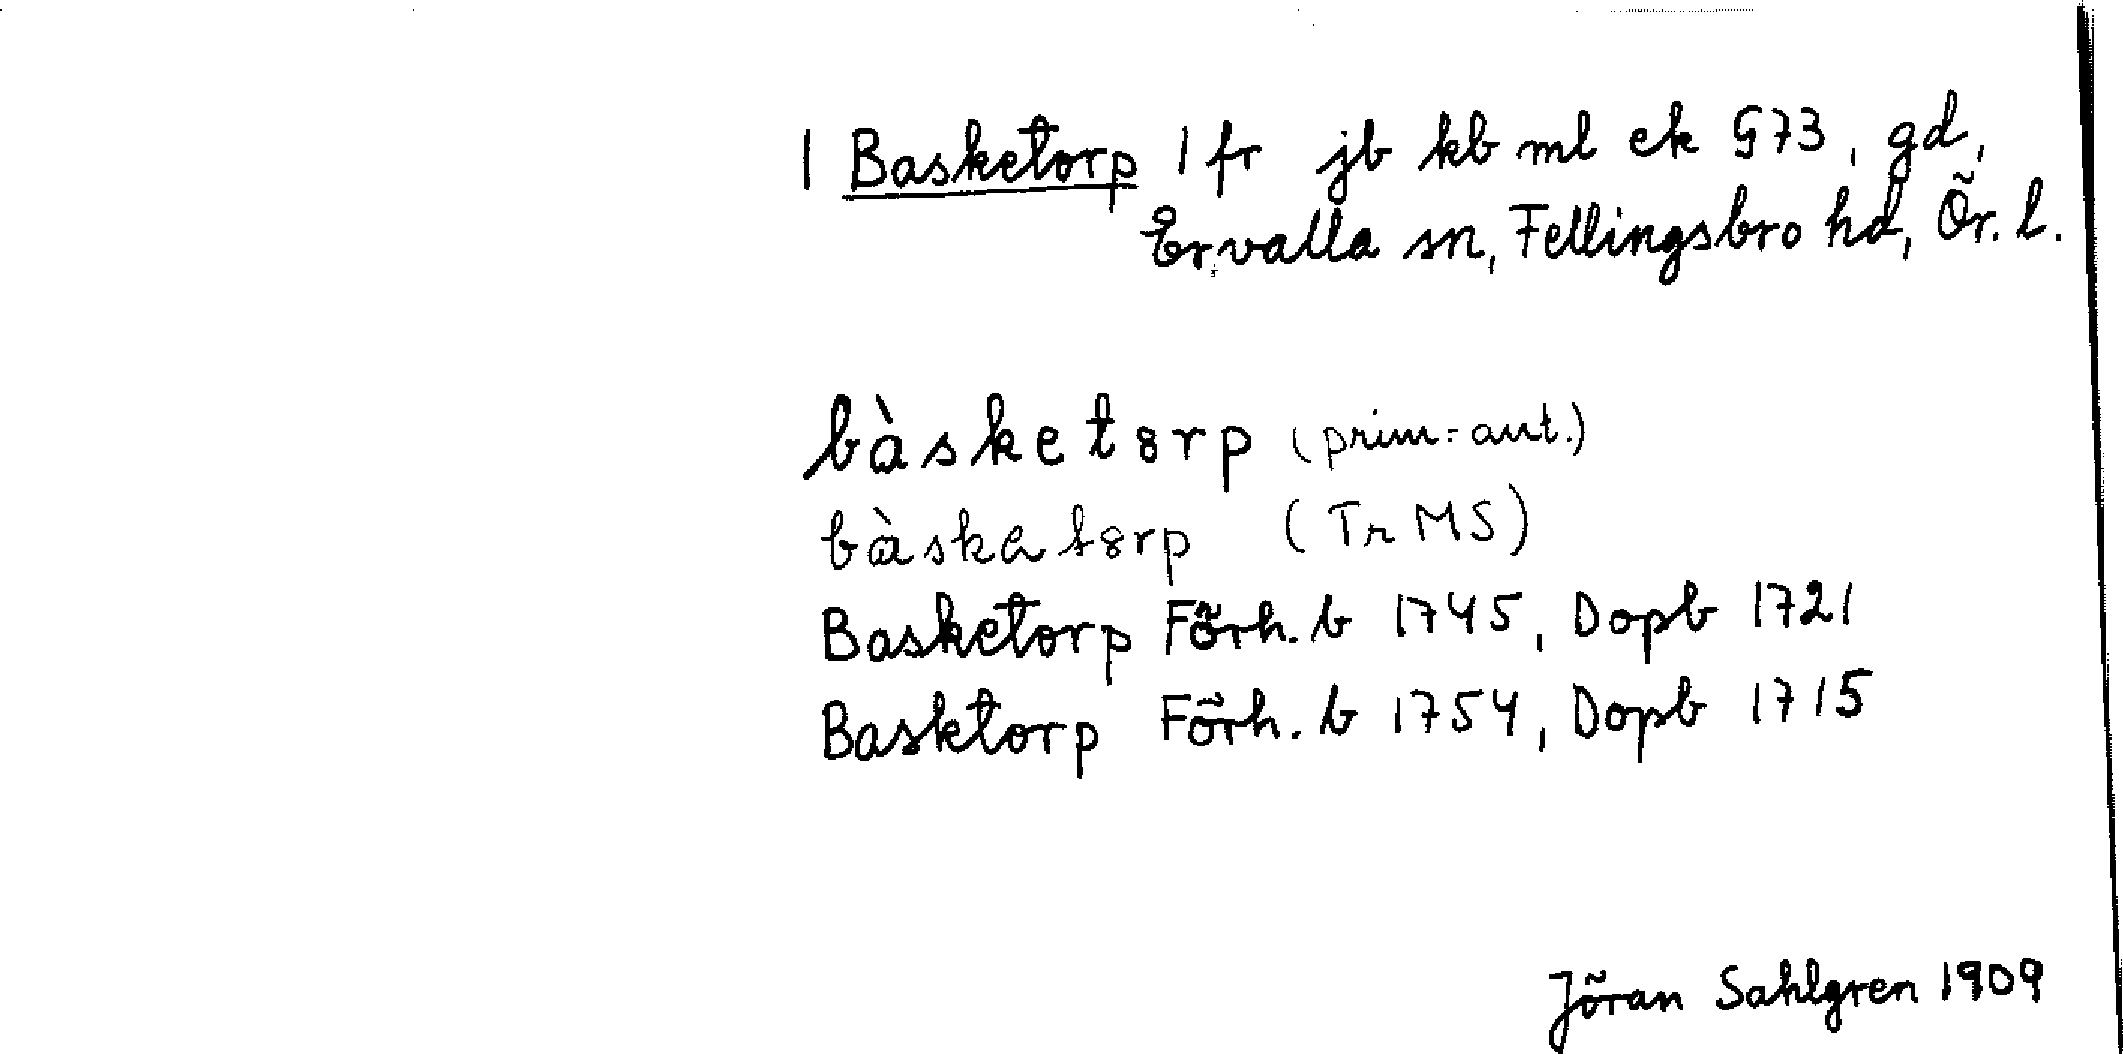 1 Basketorp 1 fr jb kb ml ek §73, gd,
Ervalla sn, Fellingsbro hd, Ör. l.
bàsketȣrp (prim-ant.)
bàskatȣrp (Tr MS)
Basketorp Förh. b 1745, Dopb 1721
Basktorp Förh. b 1754, Dopb 1715
Jöran Sahlgren 1909